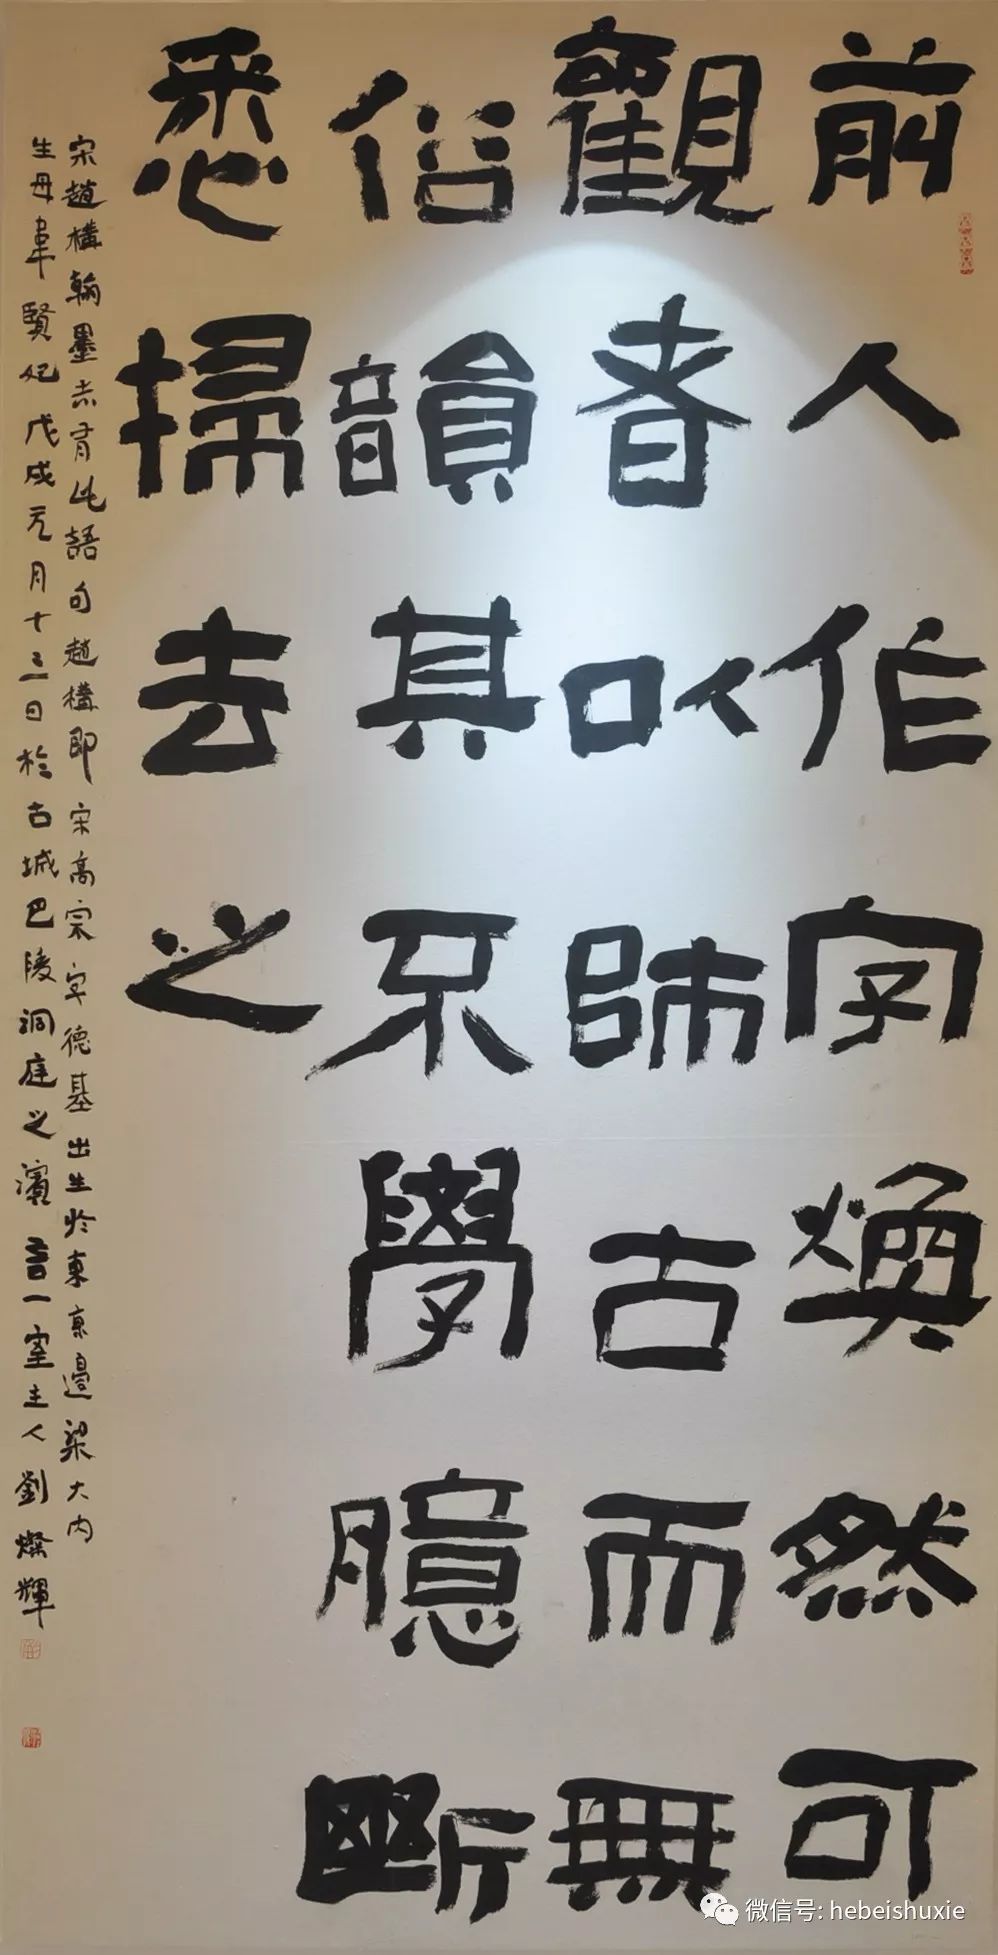 前人作字煥然可
觀者以師古而無
俗韻其不學臆斷
悉掃去之
宋趙構翰墨志有此語句趙構即宋高宗字德基出生於東京邊梁大内
生母韋賢妃戊戌元月十三日於古城巴陵洞庭之濱音一室主人劉燦輝
微信号: hebeishuxie